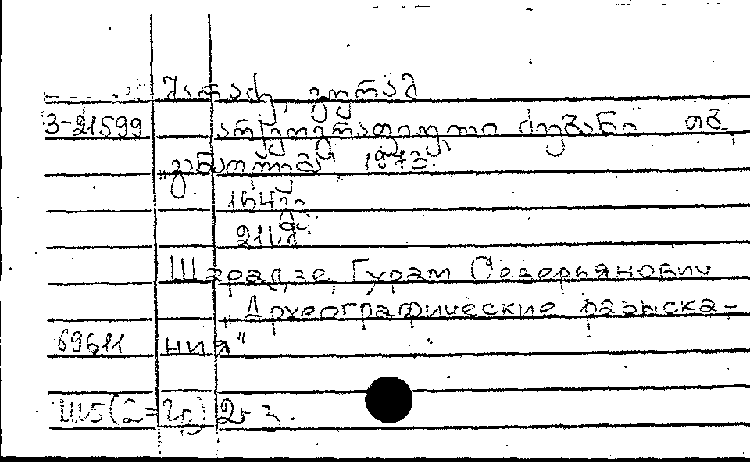 შარაძე, გურამ
3-21599 არქეოგრაფიული ძიებანი თბ.
„განათლება“, 1973.
164 გვ.
211 გ.
Шарадзе, Гурам Северьянович
„Археографические разыска-
69611 ния"
Ш5(2=Гр) 2г3.